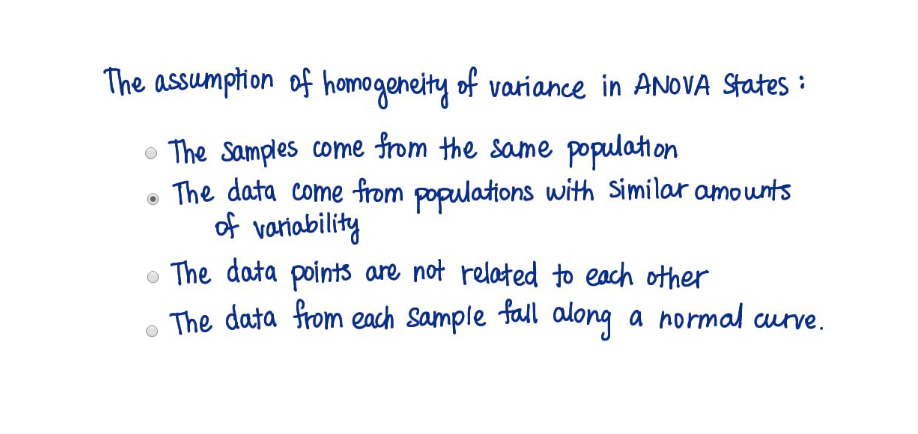 The assumption of homogeneity of variance in ANOVA States :
The samples come from the same population
The data come from populations with similar amounts
of variability
The data points are not related to each other
The data from each sample fall along a normal curve.